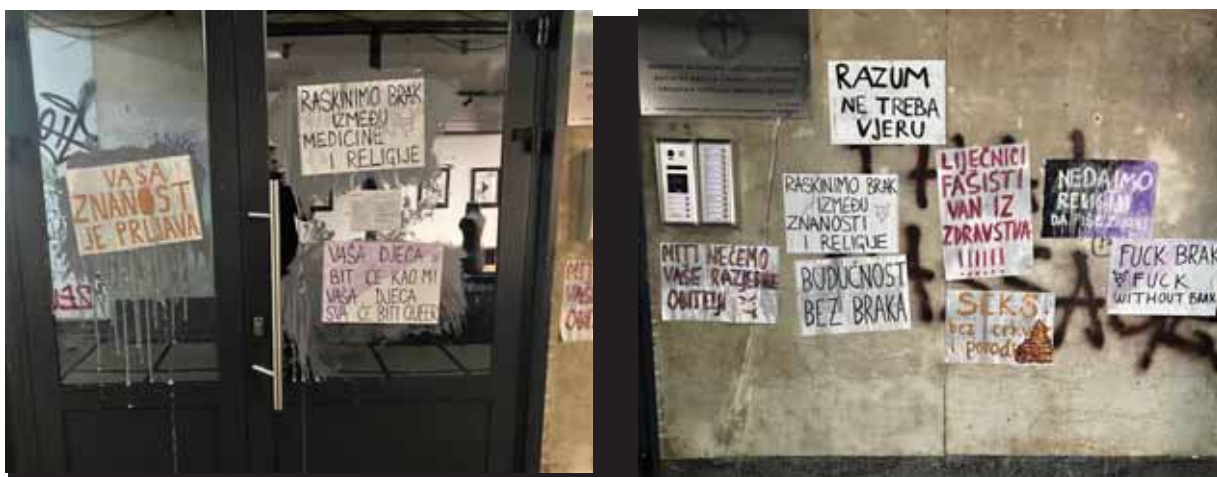 VAŠA
ZNANOST
JE PRLJAVA
RASKINIMO BRAK
IZMEĐU
MEDICINE
I RELIGIJE
VAŠA DJECA
BIT ĆE KAO MI
VAŠA DJECA
SVA ĆE BITI QUEER
RAZUM
NE TREBA
VJERU
RASKINIMO BRAK
IZMEĐU
ZNANOSTI
I RELIGIJE
LIJEČNICI
FAŠISTI
VAN IZ
ZDRAVSTVA
!!!!!!
NEDAJMO
RELIGIJI
DA PIŠE
MITI NEĆEMO
VAŠE
OBITELJI
BUDUĆNOST
BEZ BRAKA
FUCK BRAK
FUCK
WITHOUT BRAK
SEKS
bez crkve
i porodi